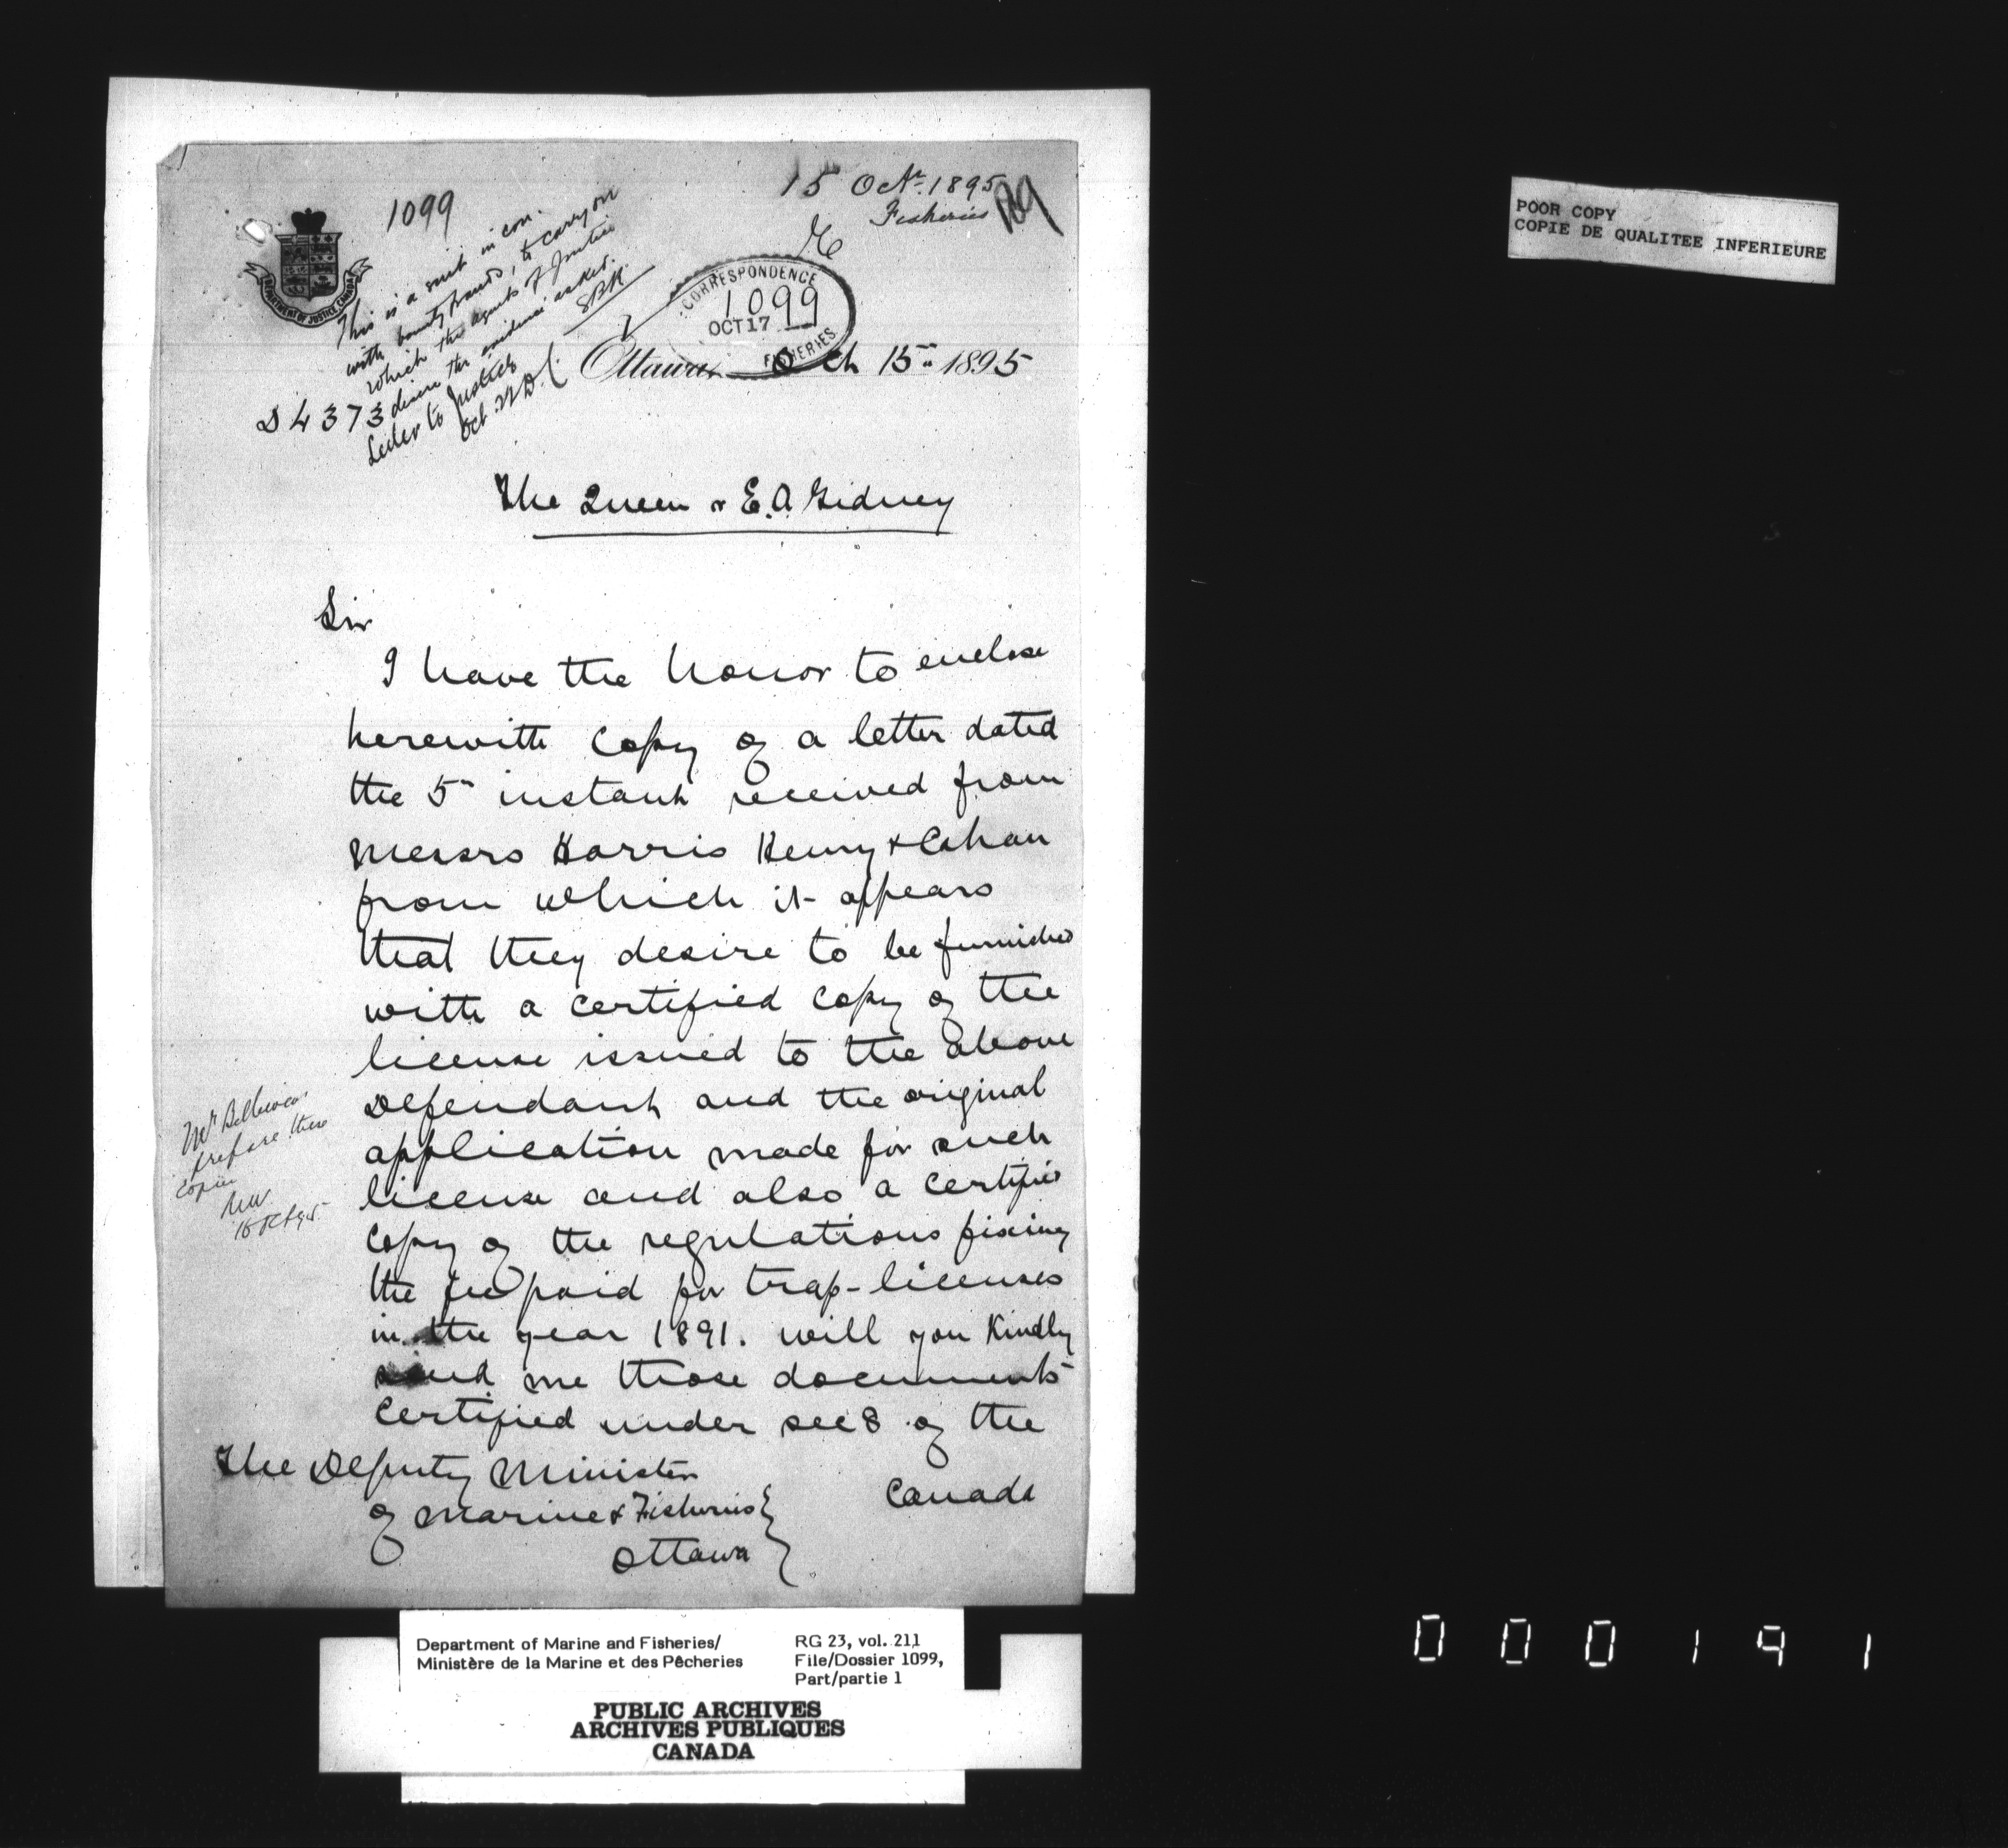 POOR COPY
COPIE DE QUALITEE INFERIEURE
15 Octr. 1895
Fisheries
1099
DEPARTMENT OF JUSTICE CANADA
This is a suit in con.
with bounty frauds, to carry on
which the agents of Justice
desire the evidence asked.
Letter to Justice
CORRESPONDENCE
1099
OCT 17
FISHERIES
Ottawa Oct 15th 1895
The Queen v E.A. Gidney
Sir
I have the honor to enclose
herewith copy of a letter dated
the 5th instant received from
Messrs Harris Henry & Cahan
from which it appears
that they desire to be furnished
with a certified copy of the
license issued to the above
Defendant and the original
application made for such
license and also a certified
copy of the regulations fixing
the fee paid for trap-licenses
in the year 1891. Will you Kindly
send me those documents
certified under sec 8 of the
Canada
prepare these
copies
The Deputy Minister
of Marine & Fisheries
Ottawa
Department of Marine and Fisheries/
Ministère de la Marine et des Pêcheries
RG 23, vol. 211
File/Dossier 1099,
Part/partie 1
PUBLIC ARCHIVES
ARCHIVES PUBLIQUES
CANADA
000191